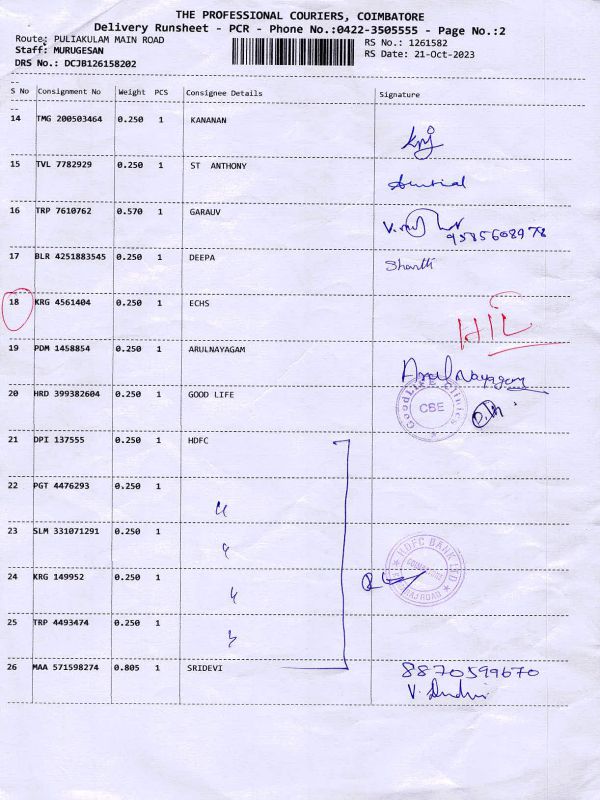 THE PROFESSIONAL COURIERS, COIMBATORE
Delivery Runsheet - PCR - Phone No.:0422-3505555 - Page No.:2
Route: PULIAKULAM MAIN ROAD
RS No.: 1261582
Staff: MURUGESAN
RS Date: 21-Oct-2023
DRS No.: DCJB126158202
S No Consignment No Weight PCS Consignee Details Signature
14 TMG 200503464 0.250 1 KANANAN
15 TVL 7782929 0.250 1 ST ANTHONY
16 TRP 7610762 0.570 1 GARAUV
9585608978
17 BLR 4251883545 0.250 1 DEEPA
18 KRG 4561404 0.250 1 ECHS
19 PDM 1458854 0.250 1 ARULNAYAGAM Arul Nayagam
20 HRD 399382604 0.250 1 GOOD LIFE
GoodLife Clinics
CBE
21 DPI 137555 0.250 1 HDFC
22 PGT 4476293 0.250 1
23 SLM 331071291 0.250 1
HDFC BANK LTD
24 KRG 149952 0.250 1
25 TRP 4493474 0.250 1
26 MAA 571598274 0.805 1 SRIDEVI 8870599670